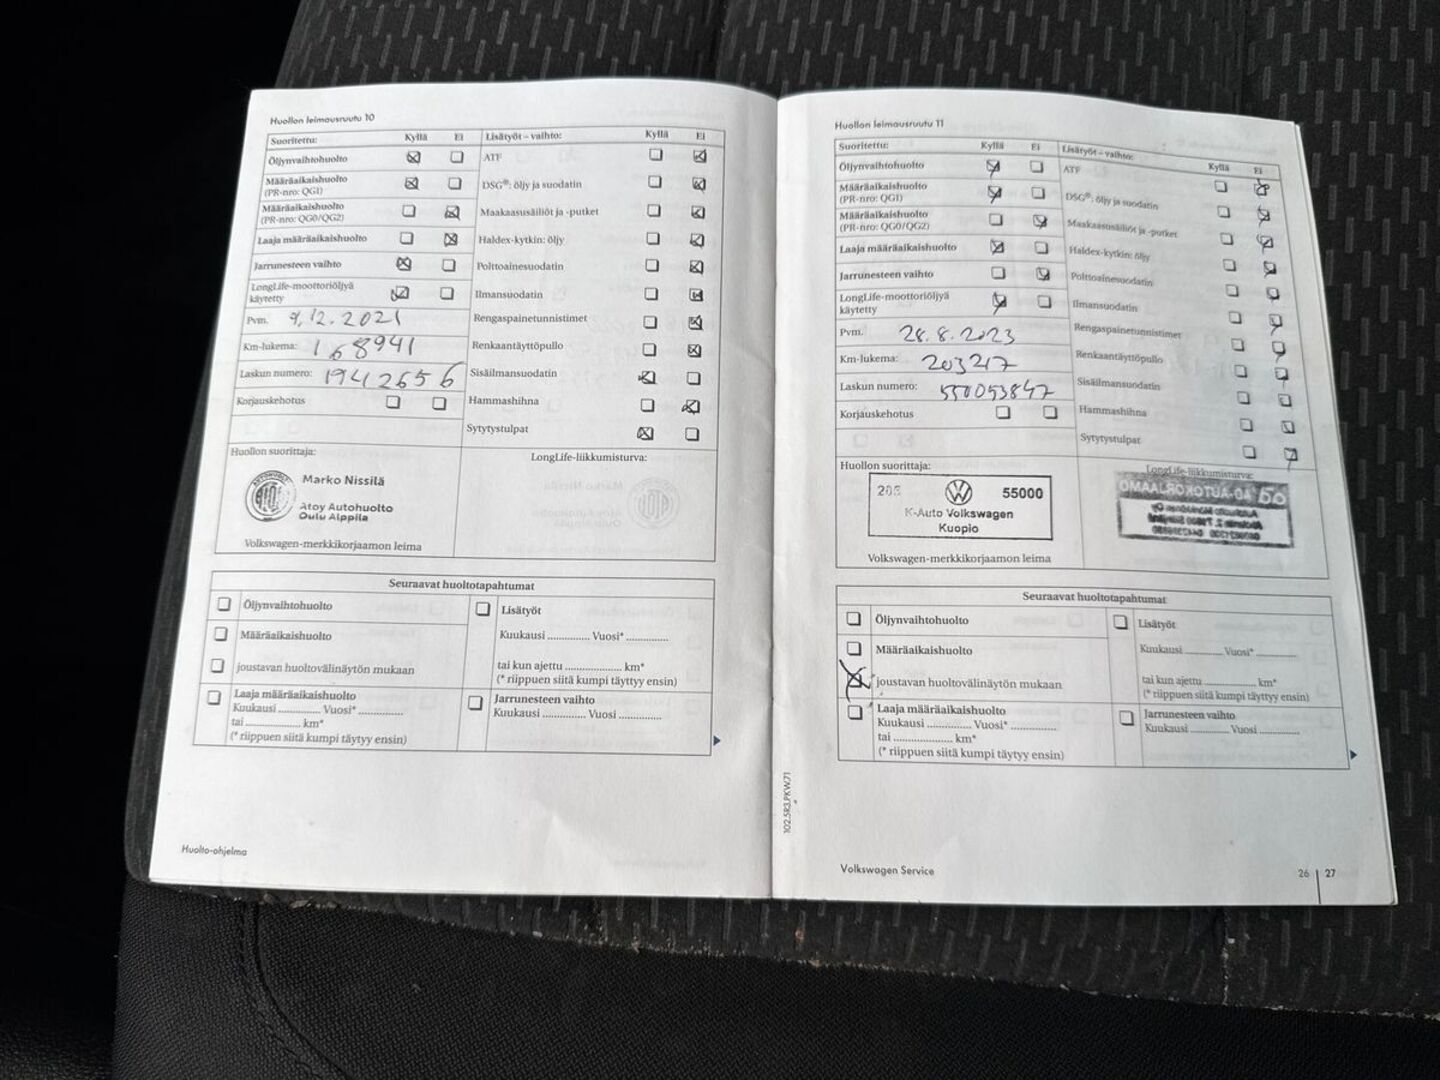 Huollon leimausruutu 10
Suoritettu: Kyllä Ei
Öljynvaihtohuolto
Määräaikaishuolto
(PR-nro: QG1)
Määräaikaishuolto
(PR-nro: QG0/QG2)
Laaja määräaikaishuolto
Jarrunesteen vaihto
LongLife-moottoriöljyä
käytetty
Pvm. 9.12.2021
Km-lukema: 168941
Laskun numero: 1942656
Korjauskehotus
Lisätyöt – vaihto: Kyllä Ei
ATF
DSG®: öljy ja suodatin
Maakaasusäiliöt ja -putket
Haldex-kytkin: öljy
Polttoainesuodatin
Ilmansuodatin
Rengaspainetunnistimet
Renkaantäyttöpullo
Sisäilmansuodatin
Hammashihna
Sytytystulpat
Huollon suorittaja:
Marko Nissilä
Atoy Autohuolto
Oulu Alppila
Volkswagen-merkkikorjaamon leima
LongLife-liikkumisturva:
Seuraavat huoltotapahtumat
Öljynvaihtohuolto
Määräaikaishuolto
joustavan huoltovälinäytön mukaan
Laaja määräaikaishuolto
Kuukausi .............. Vuosi* ..............
tai .................... km*
(* riippuen siitä kumpi täytyy ensin)
Lisätyöt
Kuukausi .............. Vuosi* ..............
tai kun ajettu .................... km*
(* riippuen siitä kumpi täytyy ensin)
Jarrunesteen vaihto
Kuukausi .............. Vuosi ..............
Huolto-ohjelma
Huollon leimausruutu 11
Suoritettu: Kyllä Ei
Öljynvaihtohuolto
Määräaikaishuolto
(PR-nro: QG1)
Määräaikaishuolto
(PR-nro: QG0/QG2)
Laaja määräaikaishuolto
Jarrunesteen vaihto
LongLife-moottoriöljyä
käytetty
Pvm. 28.8.2023
Km-lukema: 203217
Laskun numero: 550053847
Korjauskehotus
Lisätyöt – vaihto: Kyllä Ei
ATF
DSG®: öljy ja suodatin
Maakaasusäiliöt ja -putket
Haldex-kytkin: öljy
Polttoainesuodatin
Ilmansuodatin
Rengaspainetunnistimet
Renkaantäyttöpullo
Sisäilmansuodatin
Hammashihna
Sytytystulpat
Huollon suorittaja:
55000
K-Auto Volkswagen
Kuopio
Volkswagen-merkkikorjaamon leima
LongLife-liikkumisturva:
AD-AUTOKORJAAMO
Seuraavat huoltotapahtumat
Öljynvaihtohuolto
Määräaikaishuolto
joustavan huoltovälinäytön mukaan
Laaja määräaikaishuolto
Kuukausi .............. Vuosi* ..............
tai .................... km*
(* riippuen siitä kumpi täytyy ensin)
Lisätyöt
Kuukausi .............. Vuosi* ..............
tai kun ajettu .................... km*
(* riippuen siitä kumpi täytyy ensin)
Jarrunesteen vaihto
Kuukausi .............. Vuosi ..............
102.5R3.PKW.71
Volkswagen Service
26 | 27